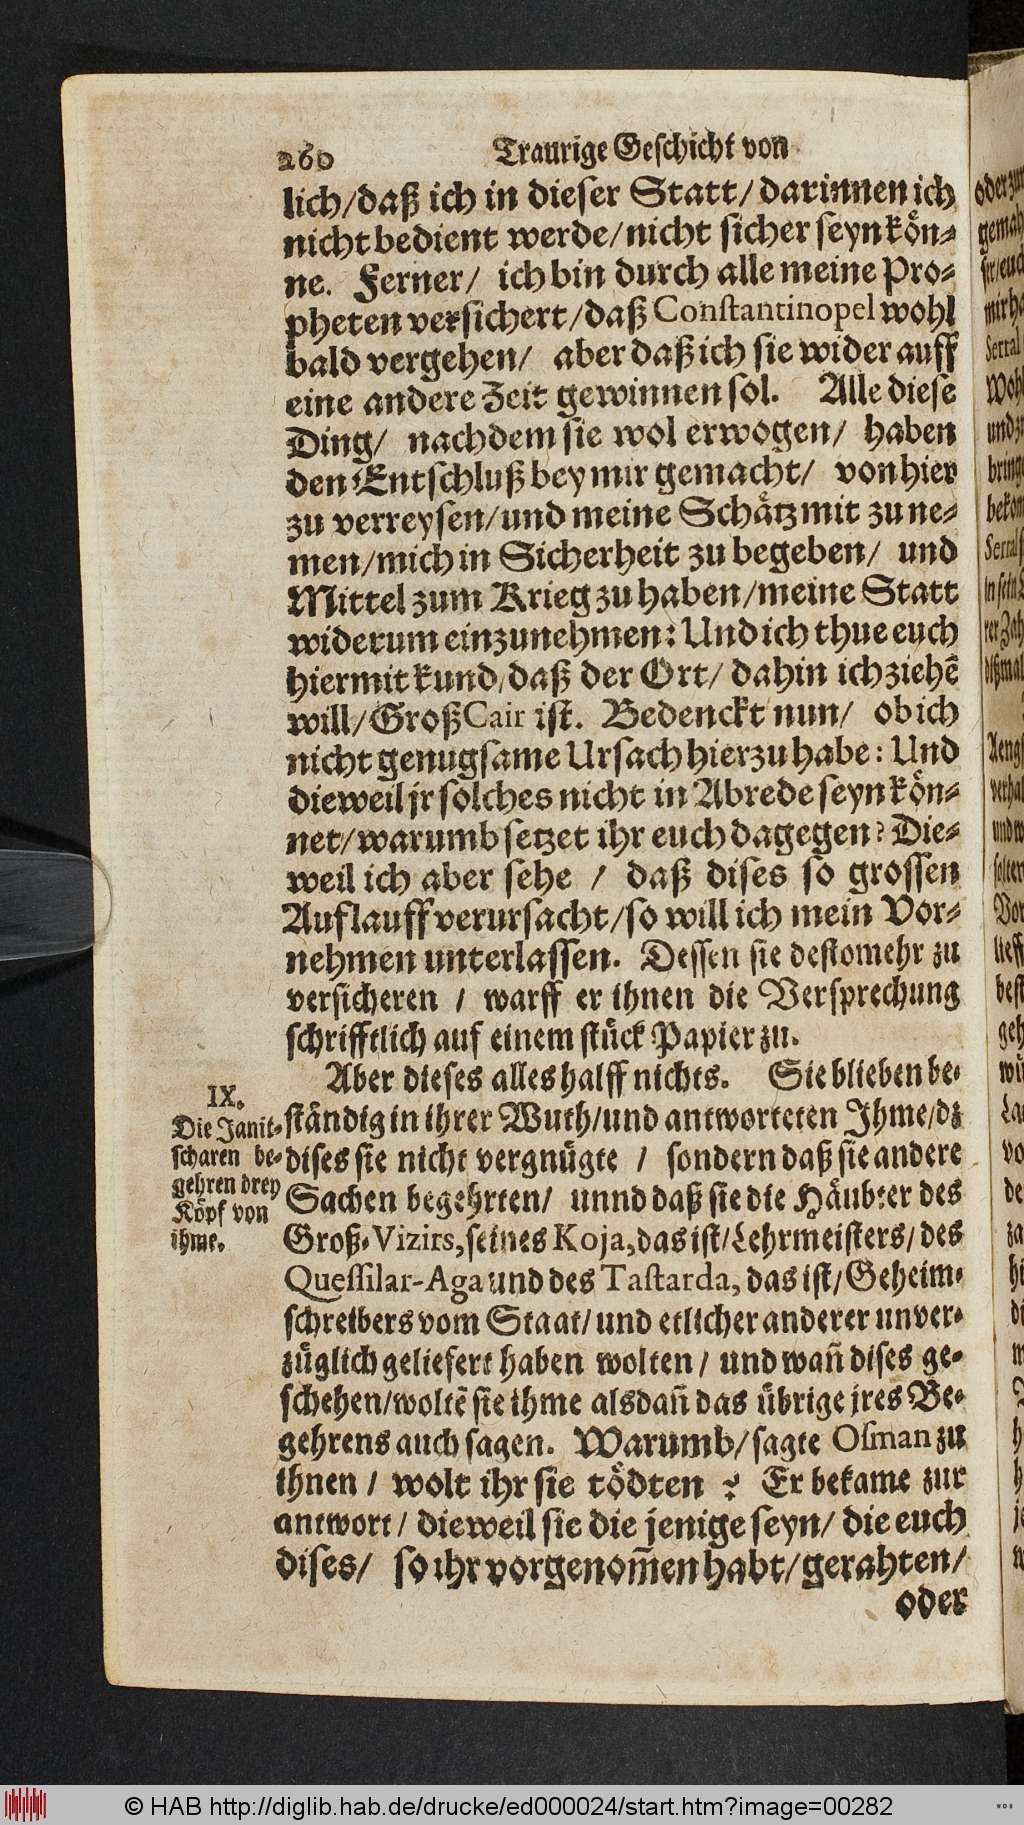 260 Traurige Geschicht von
lich/daß ich in dieser Statt/darinnen ich
nicht bedient werde/nicht sicher seyn kön-
ne. Ferner/ ich bin durch alle meine Pro-
pheten versichert/daß Constantinopel wohl
bald vergehen/ aber daß ich sie wider auff
eine andere Zeit gewinnen sol. Alle diese
Ding/ nachdem sie wol erwogen/ haben
den Entschluß bey mir gemacht/ von hier
zu verreysen/und meine Schätz mit zu ne-
men/mich in Sicherheit zu begeben/ und
Mittel zum Krieg zu haben/meine Statt
widerum einzunehmen: Und ich thue euch
hiermit kund/daß der Ort/ dahin ich ziehē
will/Groß Cair ist. Bedenckt nun/ ob ich
nicht genugsame Ursach hierzu habe: Und
dieweil jr solches nicht in Abrede seyn kön-
net/warumb setzet ihr euch dagegen? Die-
weil ich aber sehe / daß dises so grossen
Aufflauff verursacht/so will ich mein Vor-
nehmen unterlassen. Dessen sie destomehr zu
versicheren / warff er ihnen die Versprechung
schrifftlich auf einem stück Papier zu.
Aber dieses alles halff nichts. Sie blieben be-
ständig in ihrer Wuth/und antworteten Ihme/dz
dises sie nicht vergnügte / sondern daß sie andere
Sachen begehrten/ unnd daß sie die Häubter des
Groß-Vizirs, seines Koja, das ist/Lehrmeisters/des
Quessilar-Aga und des Tastarda, das ist/Geheim-
schreibers vom Staat/und etlicher anderer unver-
züglich geliefert haben wolten/ und wañ dises ge-
schehen/woltē sie ihme alsdañ das übrige jres Be-
gehrens auch sagen. Warumb/sagte Osman zu
ihnen / wolt ihr sie tödten ? Er bekame zur
antwort/ dieweil sie die jenige seyn/ die euch
dises/ so ihr vorgenom̃en habt/gerahten/
oder
IX.
Die Janit-
scharen be-
gehren drey
Köpf von
ihme.
© HAB http://diglib.hab.de/drucke/ed000024/start.htm?image=00282